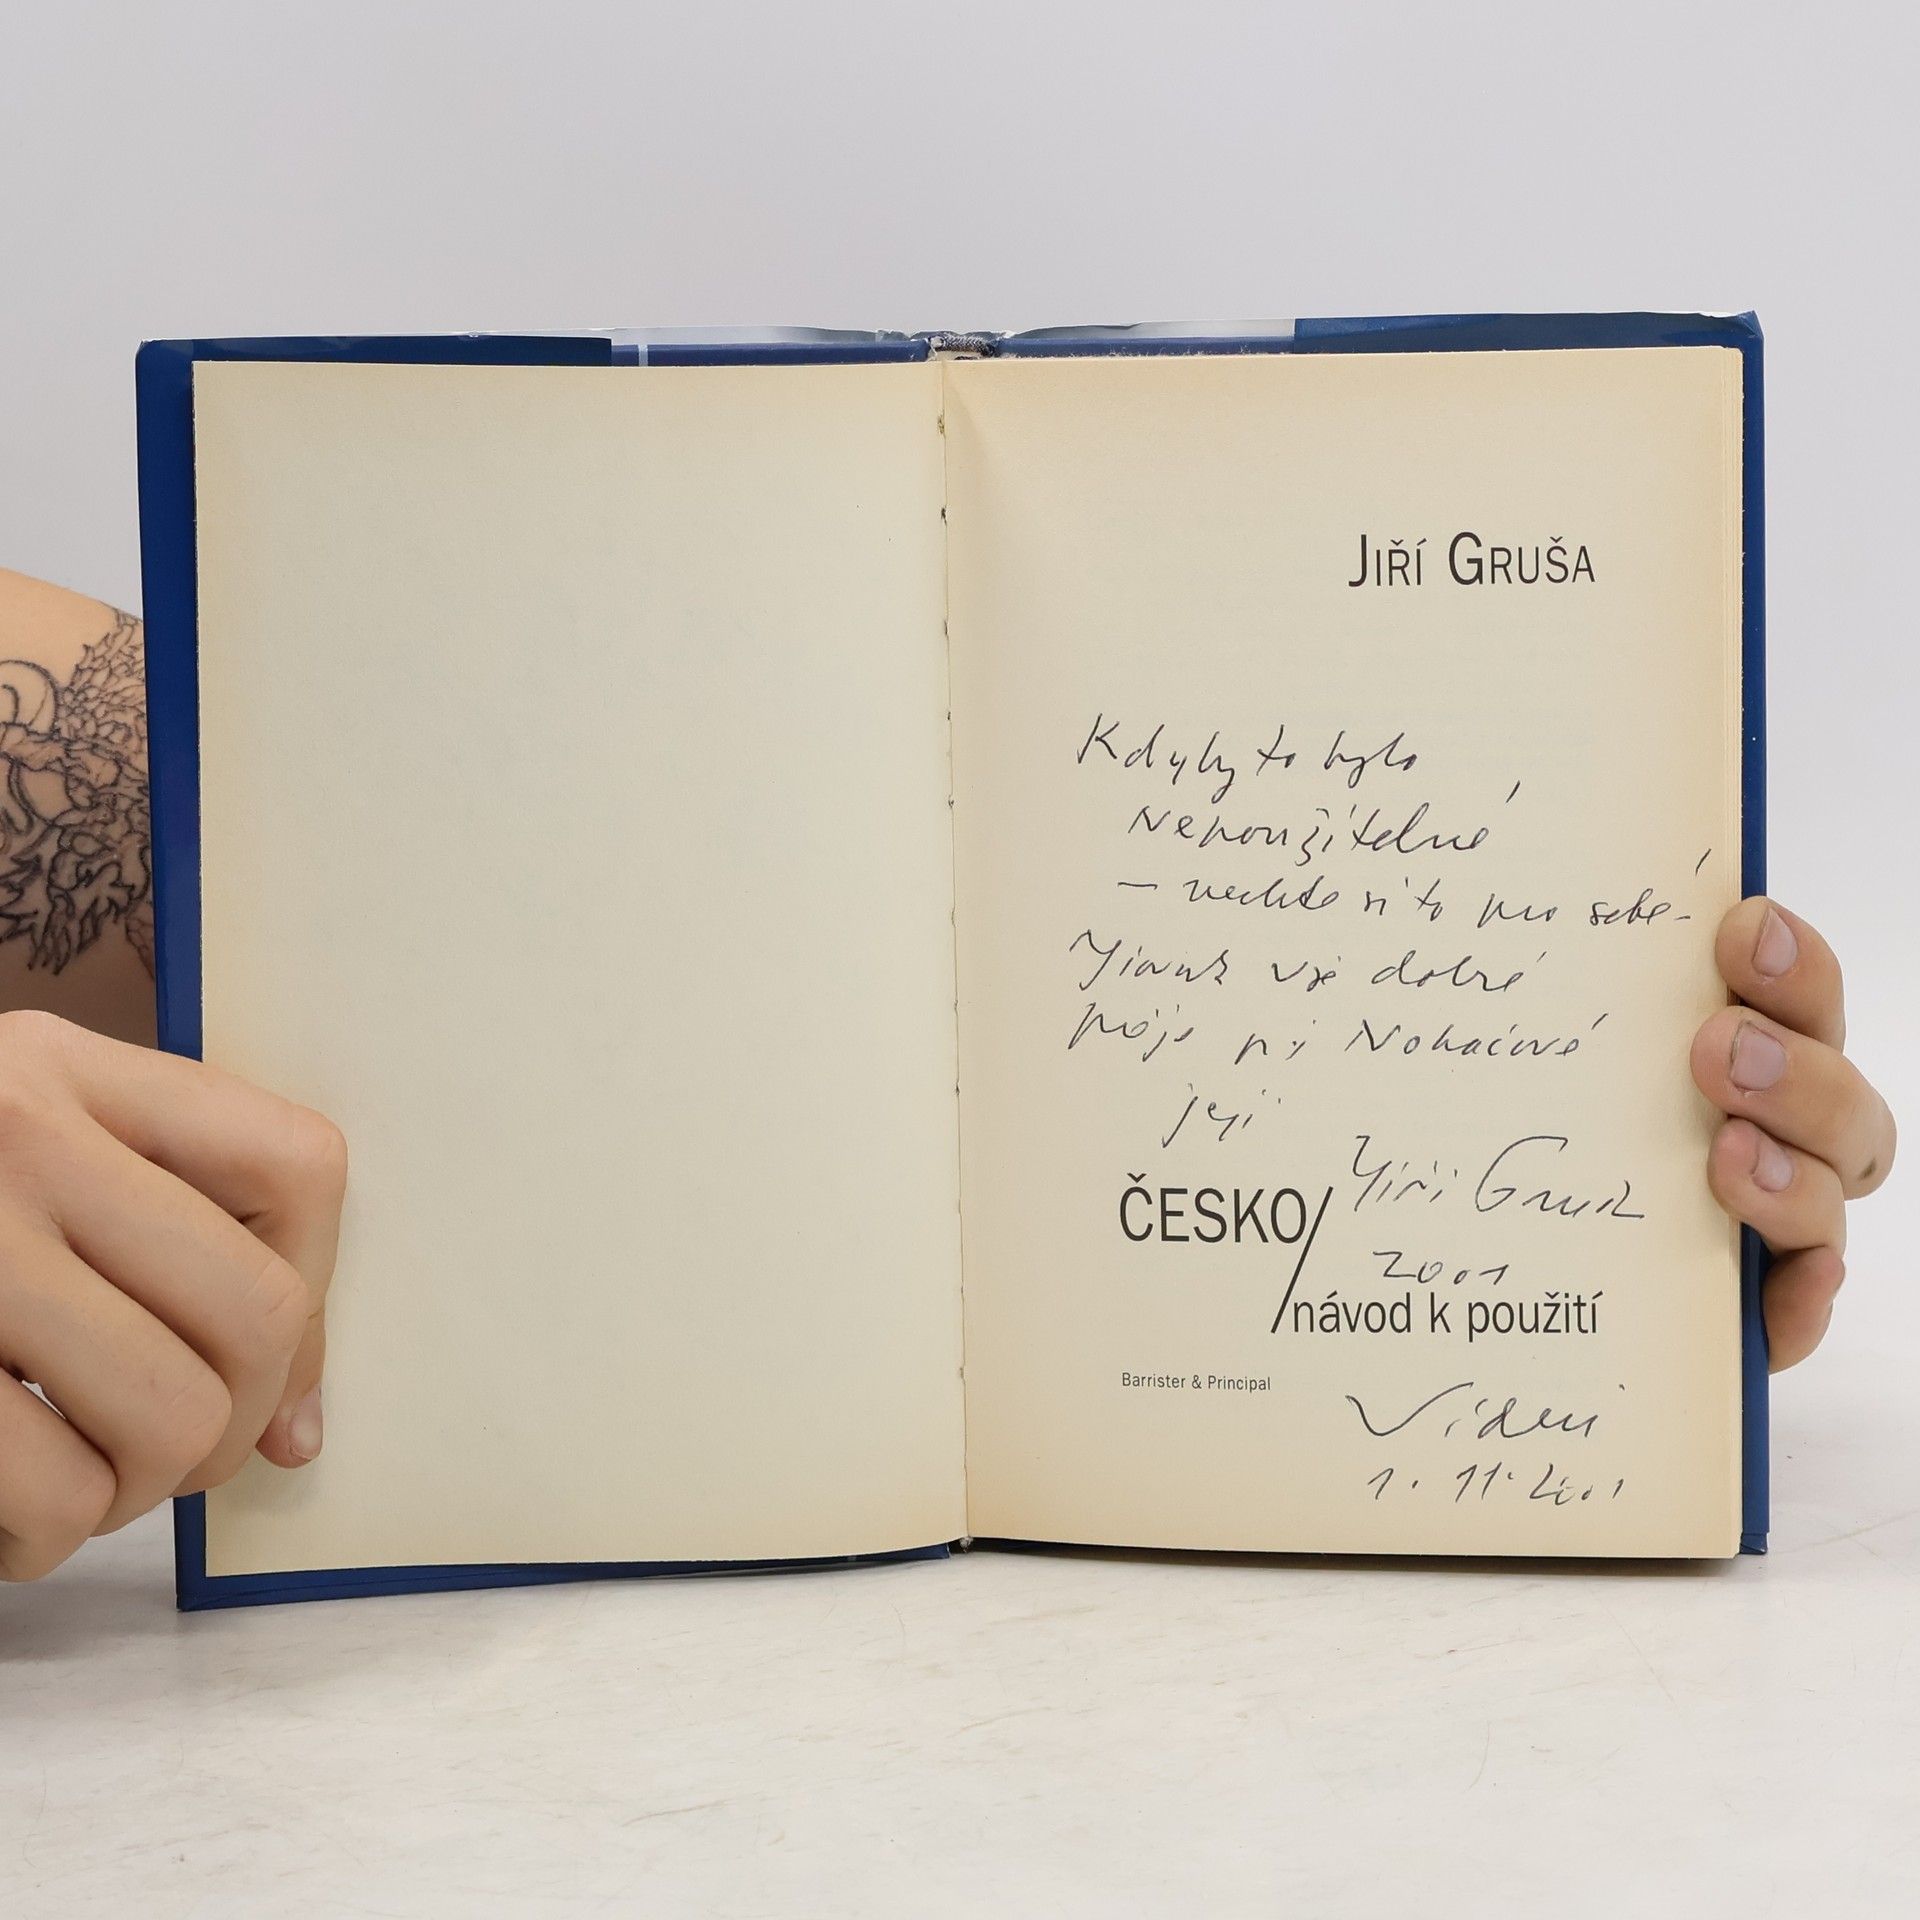 Jiří Gruša
Kdyby to bylo
nepoužitelné
– nechte si to pro sebe –
Jinak vše dobré
přeje pí Nohačové
její
Jiří Gruša
ČESKO/
2001
/návod k použití
Barrister & Principal
Vídeň
1. 11. 2001